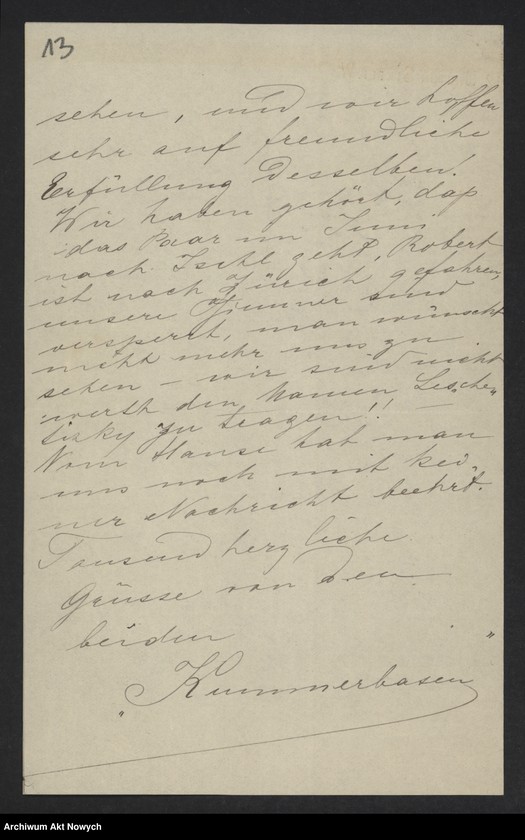 13
sehen, und wir hoffen
sehr auf freundliche
Erfüllung desselben!
Wir haben gehört, daß
das Paar im Juni
nach Ischl geht, Robert
ist nach Zürich gefahren,
unsere Zimmer sind
versperrt, man wünscht
nicht mehr uns zu
sehen – wir sind nicht
werth den Namen Lesche„
tizky zu tragen!! –
Vom Hause hat man
uns noch mit kei„
ner Nachricht beehrt.
Tausend herzliche
Grüsse von den
beiden
„Kummerbasen"
Archiwum Akt Nowych